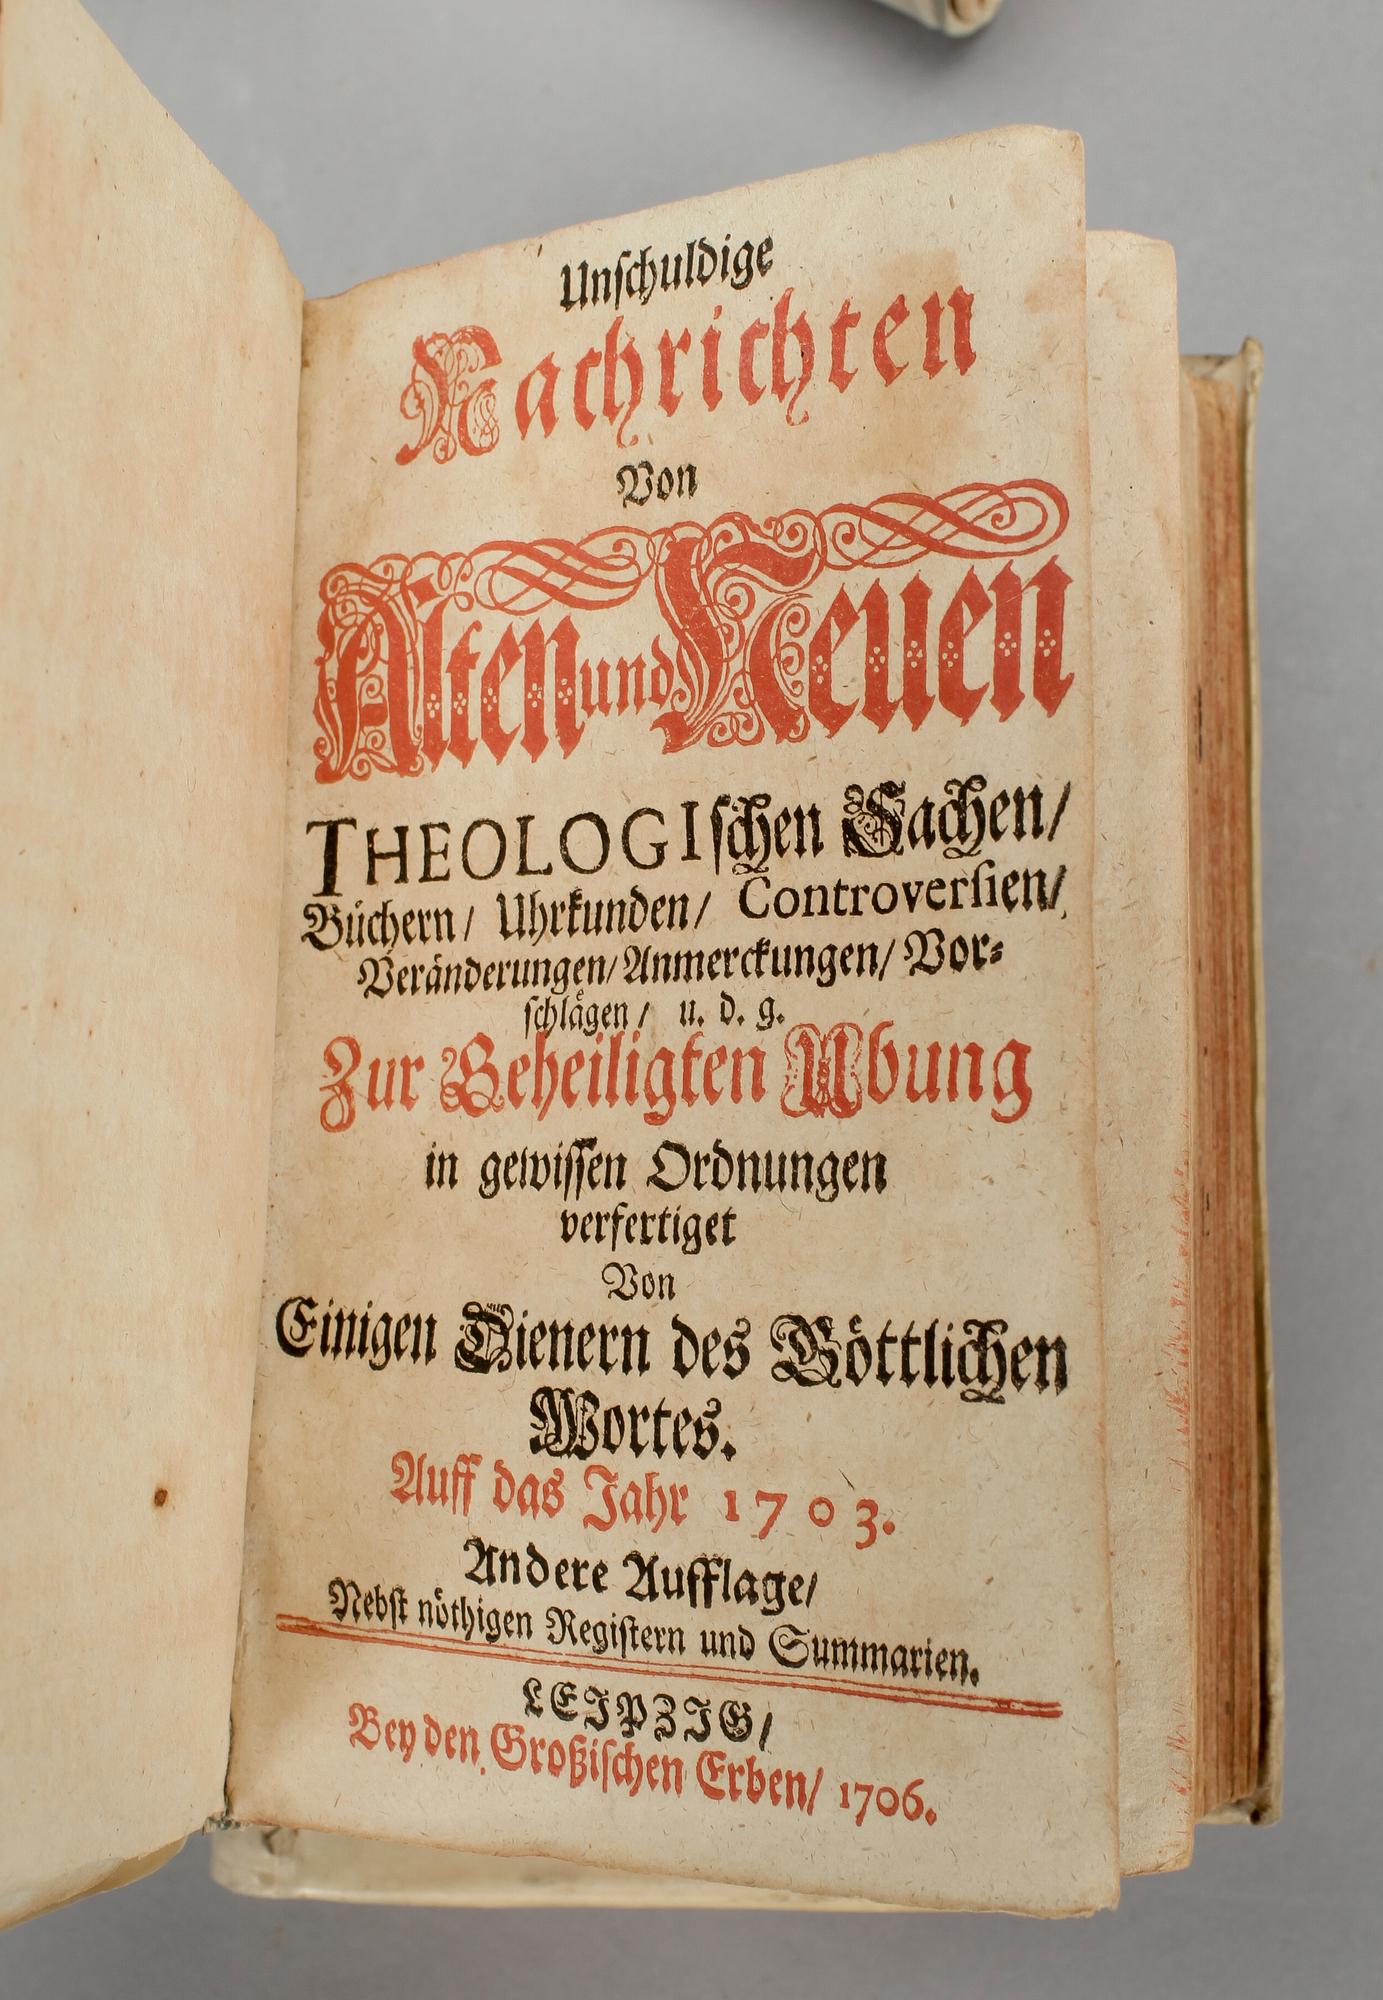 Unſchuldige
Nachrichten
Von
Alten und Neuen
THEOLOGIſchen Sachen/
Büchern/ Uhrkunden/ Controverſien/
Veränderungen/ Anmerckungen/ Vor⸗
ſchlägen/ u. d. g.
Zur Geheiligten Ubung
in gewiſſen Ordnungen
verfertiget
Von
Einigen Dienern des Göttlichen
Wortes.
Auff das Jahr 1703.
Andere Aufflage/
Nebſt nöthigen Regiſtern und Summarien.
LEIPZIG/
Bey den Großiſchen Erben/ 1706.